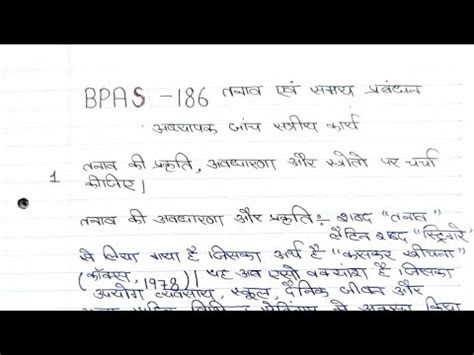 BPAS -186 तनाव एवं समय प्रबंधन
अध्यापक जांच सत्रीय कार्य
1 तनाव की प्रकृति, अवधारणा और स्त्रोतो पर चर्चा
कीजिए।
तनाव की अवधारणा और प्रकृति:- शब्द "तनाव"
लैटिन शब्द "स्ट्रिंगरे"
से लिया गया है जिसका अर्थ है "कसकर खींचना"
(कॉक्स, 1978)। यह अब ऐसी वाक्यांश है जिसका
उपयोग व्यवसाय, स्कूल, दैनिक जीवन और